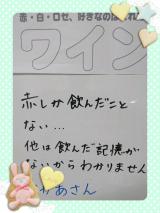 赤・白・ロゼ、好きなのは
ワイン
赤しか飲んだこと
ない…
他は飲んだ記憶が
ないからわかりません
あさん